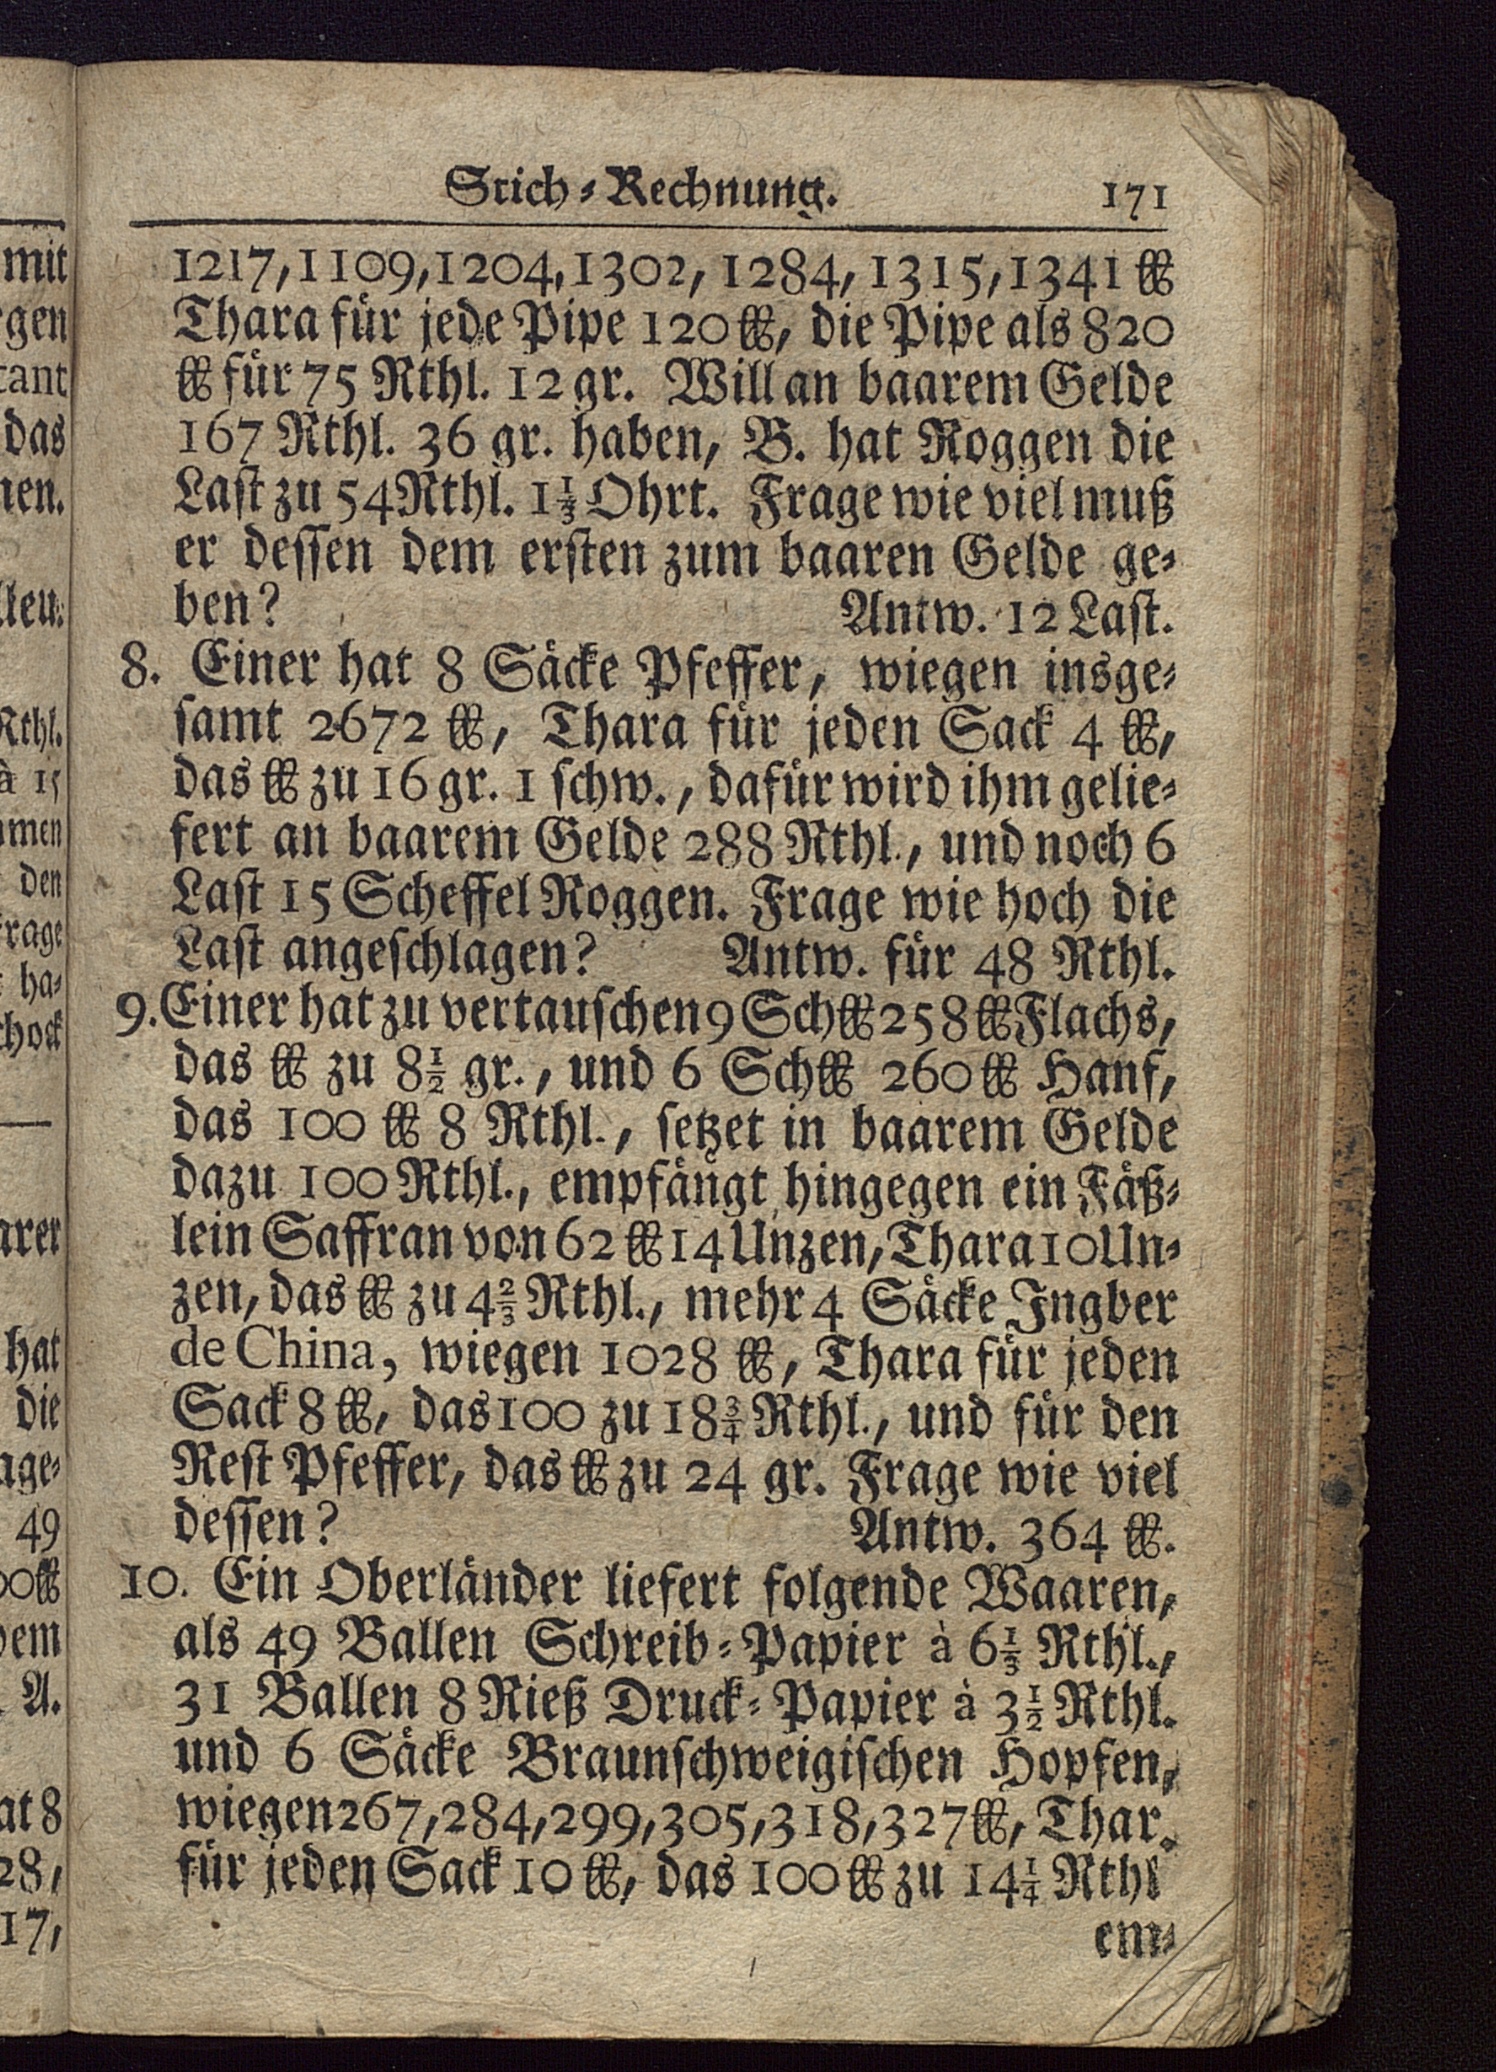 Stich-Rechnung. 171
1217, 1109, 1204, 1302, 1284, 1315, 1341 ℔
Thara für jede Pipe 120 ℔, die Pipe als 820
℔ für 75 Rthl. 12 gr. Will an baarem Gelde
167 Rthl. 36 gr. haben, B. hat Roggen die
Last zu 54 Rthl. 1⅓ Ohrt. Frage wie viel muß
er dessen dem ersten zum baaren Gelde ge-
ben? Antw. 12 Last.
8. Einer hat 8 Säcke Pfeffer, wiegen insge-
samt 2672 ℔, Thara für jeden Sack 4 ℔,
das ℔ zu 16 gr. 1 schw., dafür wird ihm gelie-
fert an baarem Gelde 288 Rthl., und noch 6
Last 15 Scheffel Roggen. Frage wie hoch die
Last angeschlagen? Antw. für 48 Rthl.
9. Einer hat zu vertauschen 9 Sch℔ 258 ℔ Flachs,
das ℔ zu 8½ gr., und 6 Sch℔ 260 ℔ Hanf,
das 100 ℔ 8 Rthl., setzet in baarem Gelde
dazu 100 Rthl., empfängt hingegen ein Fäß-
lein Saffran von 62 ℔ 14 Unzen, Thara 10 Un-
zen, das ℔ zu 4⅔ Rthl., mehr 4 Säcke Ingber
de China, wiegen 1028 ℔, Thara für jeden
Sack 8 ℔, das 100 zu 18¾ Rthl., und für den
Rest Pfeffer, das ℔ zu 24 gr. Frage wie viel
dessen? Antw. 364 ℔.
10. Ein Oberländer liefert folgende Waaren,
als 49 Ballen Schreib-Papier à 6⅓ Rthl.,
31 Ballen 8 Rieß Druck-Papier à 3½ Rthl.
und 6 Säcke Braunschweigischen Hopfen,
wiegen 267, 284, 299, 305, 318, 327 ℔, Thar.
für jeden Sack 10 ℔, das 100 ℔ zu 14¼ Rthl
em-